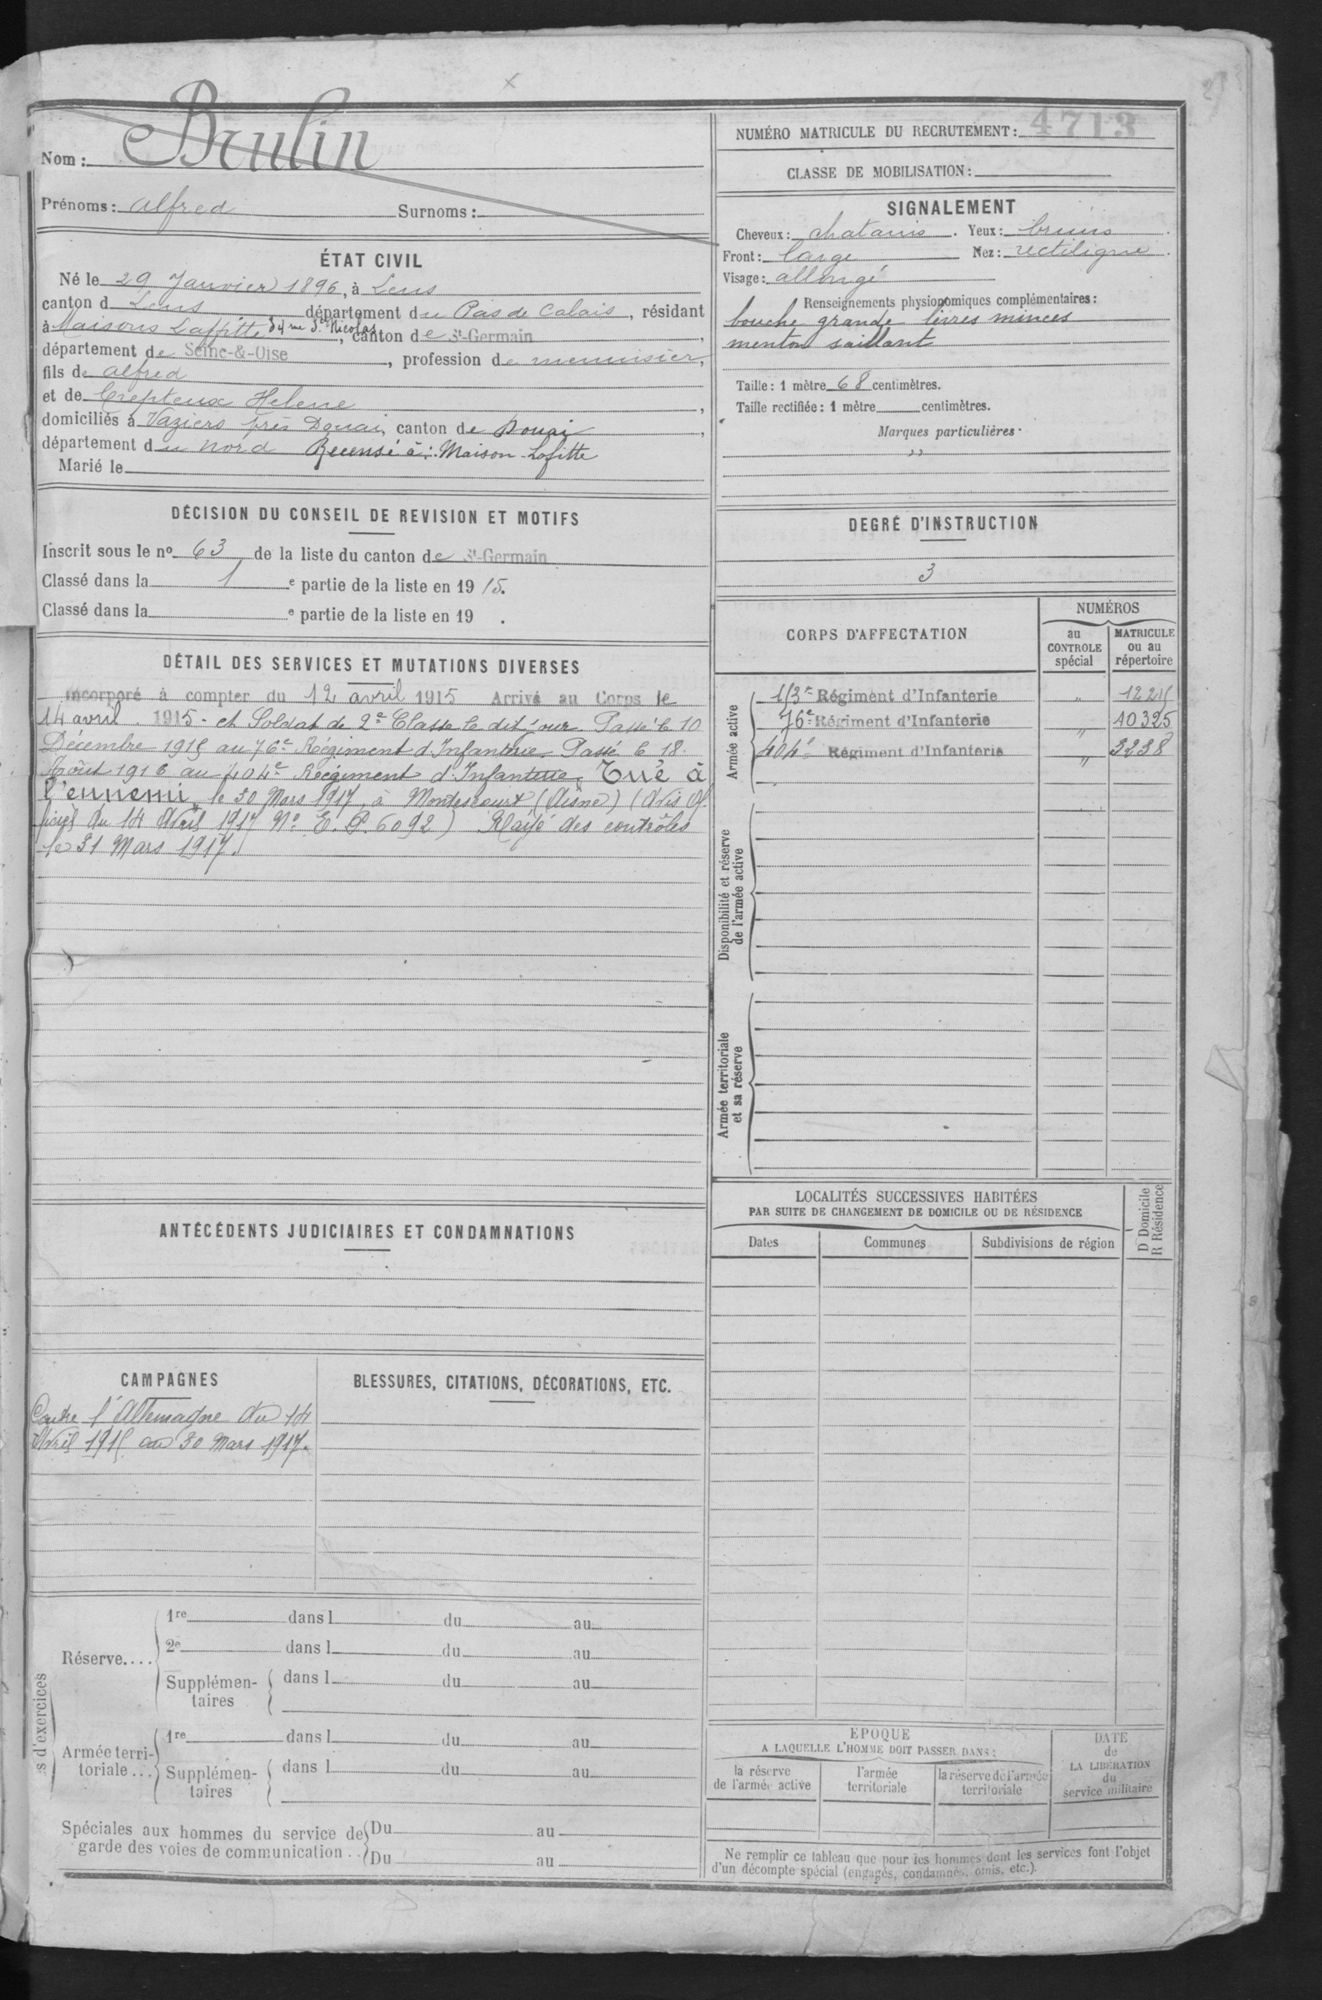 4713
NUMÉRO MATRICULE DU RECRUTEMENT :
CLASSE DE MOBILISATION :
Nom :
Prénoms : Alfred Surnoms :
ÉTAT CIVIL
Né le 29 Janvier 1896, à Lens
canton d Lens département du Pas de Calais, résidant
à Maisons Laffitte 34 rue St Nicolas, canton de St-Germain,
département de Seine-&-Oise, profession de menuisier,
fils de Alfred
et de Helene,
domiciliés à Vaziers près Douai, canton de Douai,
département du Nord Recensé à : Maison-Lafitte
Marié le
DÉCISION DU CONSEIL DE REVISION ET MOTIFS
Inscrit sous le no 63 de la liste du canton de St-Germain
Classé dans la 1 e partie de la liste en 1915.
Classé dans la e partie de la liste en 19 .
DÉTAIL DES SERVICES ET MUTATIONS DIVERSES
Incorporé à compter du 12 avril 1915 Arrivé au Corps le
14 avril 1915 - et Soldat de 2e Classe le dit jour. Passé le 10
Décembre 1915 au 76e Régiment d'Infanterie. Passé le 18
Août 1916 au 404e Régiment d'Infanterie. Tué à
l'ennemi, le 30 Mars 1917, à Montescourt (Aisne) (Avis of-
ficiel du 14 Avril 1917 No E. P. 6092) Rayé des contrôles
le 31 Mars 1917.
ANTÉCÉDENTS JUDICIAIRES ET CONDAMNATIONS
CAMPAGNES
Contre l'Allemagne du 14
Avril 1915 au 30 Mars 1917.
BLESSURES, CITATIONS, DÉCORATIONS, ETC.
s d'exercices
Réserve....
1re dans l du au
2e dans l du au
Supplémen-taires { dans l du au
Armée terri-toriale...
1re dans l du au
Supplémen-taires { dans l du au
Spéciales aux hommes du service de { Du au
garde des voies de communication .. { Du au
SIGNALEMENT
Cheveux : chatains. Yeux : bruns.
Front : large Nez : rectiligne.
Visage : allongé
Renseignements physionomiques complémentaires :
bouche grande lèvres minces
menton saillant
Taille : 1 mètre 68 centimètres.
Taille rectifiée : 1 mètre centimètres.
Marques particulières :
"
DEGRÉ D'INSTRUCTION
3
CORPS D'AFFECTATION
NUMÉROS
au CONTROLE spécial
MATRICULE ou au répertoire
Armée active
Régiment d'Infanterie "
76e Régiment d'Infanterie " 10325
404e Régiment d'Infanterie " 3238
Disponibilité et réserve
de l'armée active
Armée territoriale
et sa réserve
LOCALITÉS SUCCESSIVES HABITÉES
PAR SUITE DE CHANGEMENT DE DOMICILE OU DE RÉSIDENCE
D Domicile
R Résidence
Dates Communes Subdivisions de région
EPOQUE
A LAQUELLE L'HOMME DOIT PASSER DANS :
la réserve de l'armée active
l'armée territoriale
la réserve de l'armée territoriale
DATE
de
LA LIBÉRATION
du
service militaire
Ne remplir ce tableau que pour les hommes dont les services font l'objet
d'un décompte spécial (engagés, condamnés, omis, etc.).